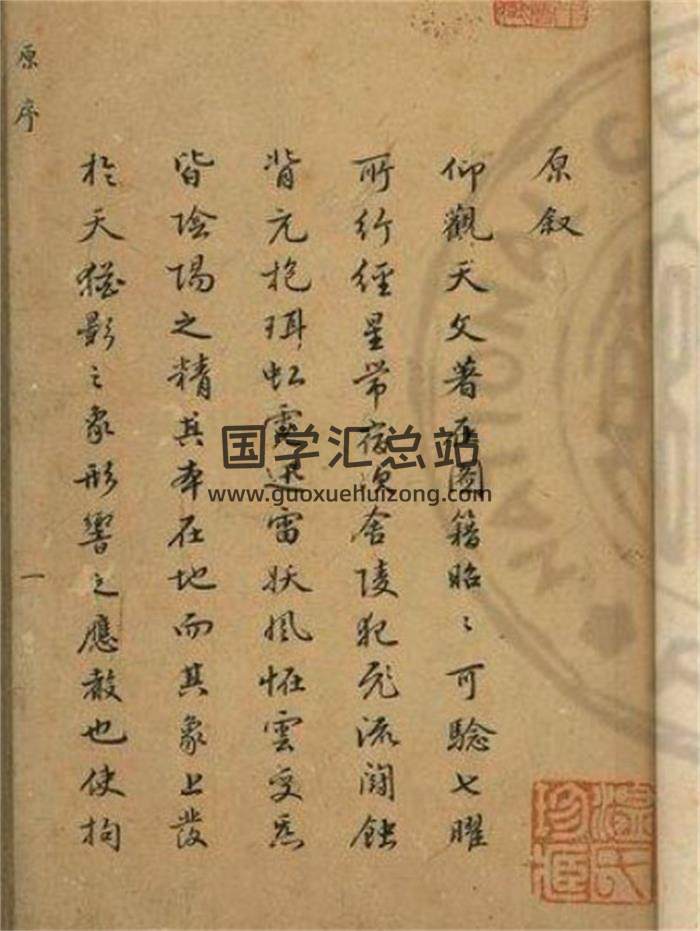 原叙
仰觀天文著在圖籍昭〻可驗七曜
所行經星常宿負舍陵犯飛流鬭蝕
背元抱珥虹霓迅雷妖風恠雲变炁
皆陰陽之精其本在地而其象上發
於天猶影之象形響之應殸也使拘
原序
一
国学汇总站
www.guoxuehuizong.com